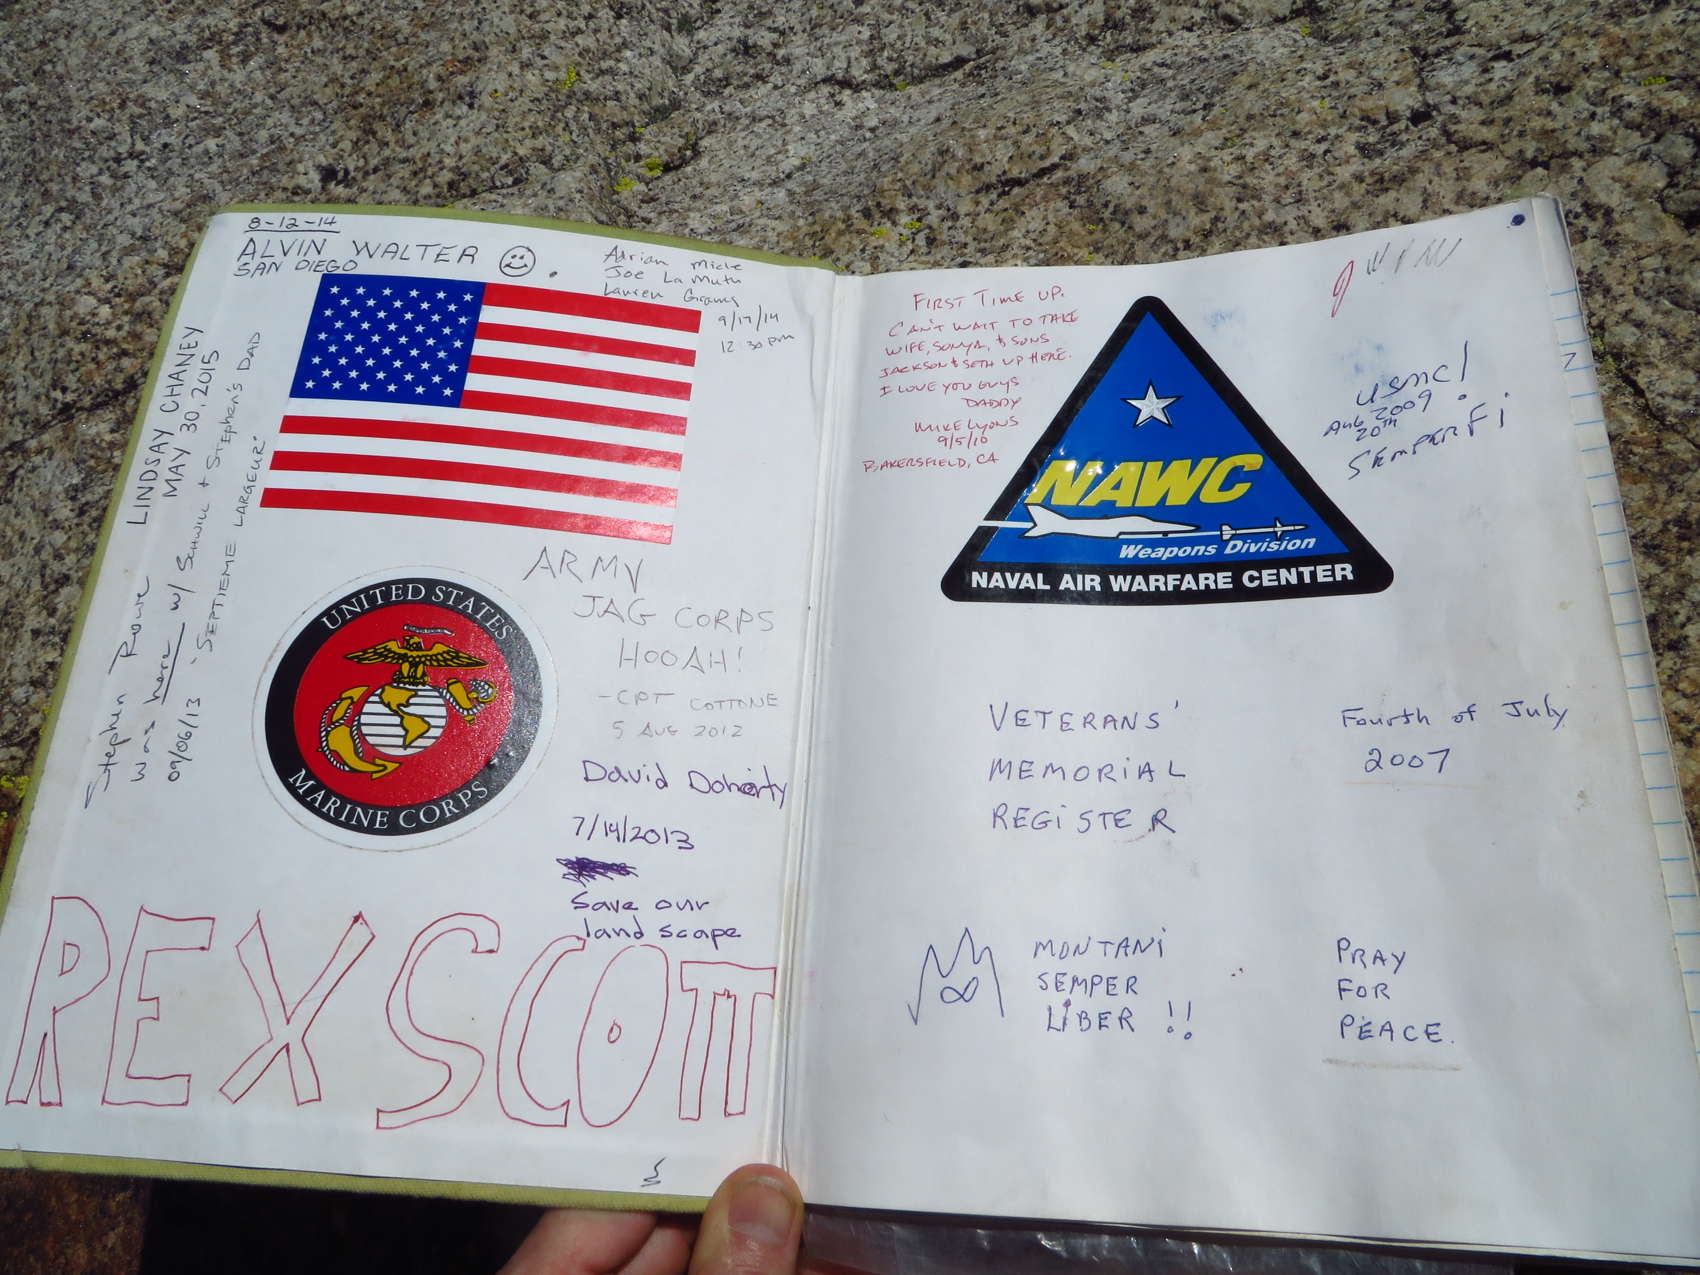 8-12-14
ALVIN WALTER
SAN DIEGO
Adrian
Joe La
Lauren
9/17/14
12:30 pm
LINDSAY CHANEY
MAY 30, 2015
Stephen
was here w/ Schwill + Stephen's DAD
09/06/13 SEPTIEME LARGEUR
ARMY
JAG CORPS
HOOAH!
-CPT COTTONE
5 AUG 2012
UNITED STATES
MARINE CORPS
David Doherty
7/14/2013
Save our
land scape
REX SCOTT
FIRST TIME UP.
CAN'T WAIT TO TAKE
WIFE, SONYA, & SONS
JACKSON & SETH UP HERE.
I LOVE YOU GUYS
DADDY
MIKE LYONS
9/5/10
BAKERSFIELD, CA
NAWC
Weapons Division
NAVAL AIR WARFARE CENTER
USMC!
AUG 2009.
20th
SEMPER Fi
VETERANS'
MEMORIAL
REGISTER
Fourth of July
2007
MONTANi
SEMPER
LIBER !!
PRAY
FOR
PEACE.